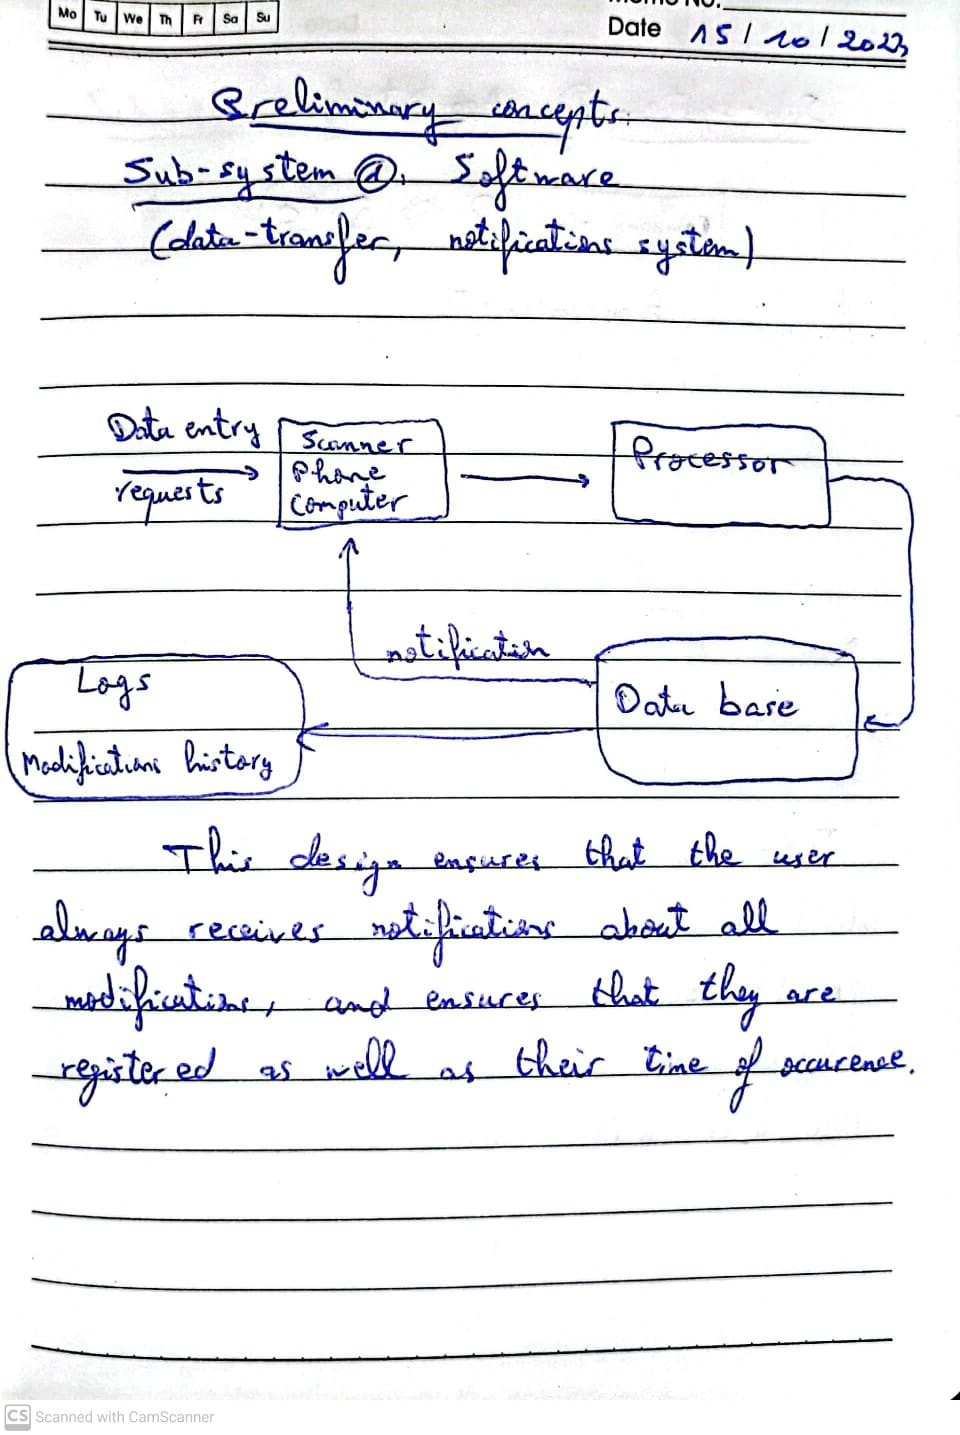 Mo Tu We Th Fr Sa Su
Date 15/10/2023
Preliminary concepts.
Sub-system @. Software
(data-transfer, notifications system)
Data entry
requests
Scanner
Phone
Computer
Processor
notification
Logs
Modifications history
Data base
This design ensures that the user
always receives notifications about all
modifications, and ensures that they are
registered as well as their time of occurence.
CS Scanned with CamScanner